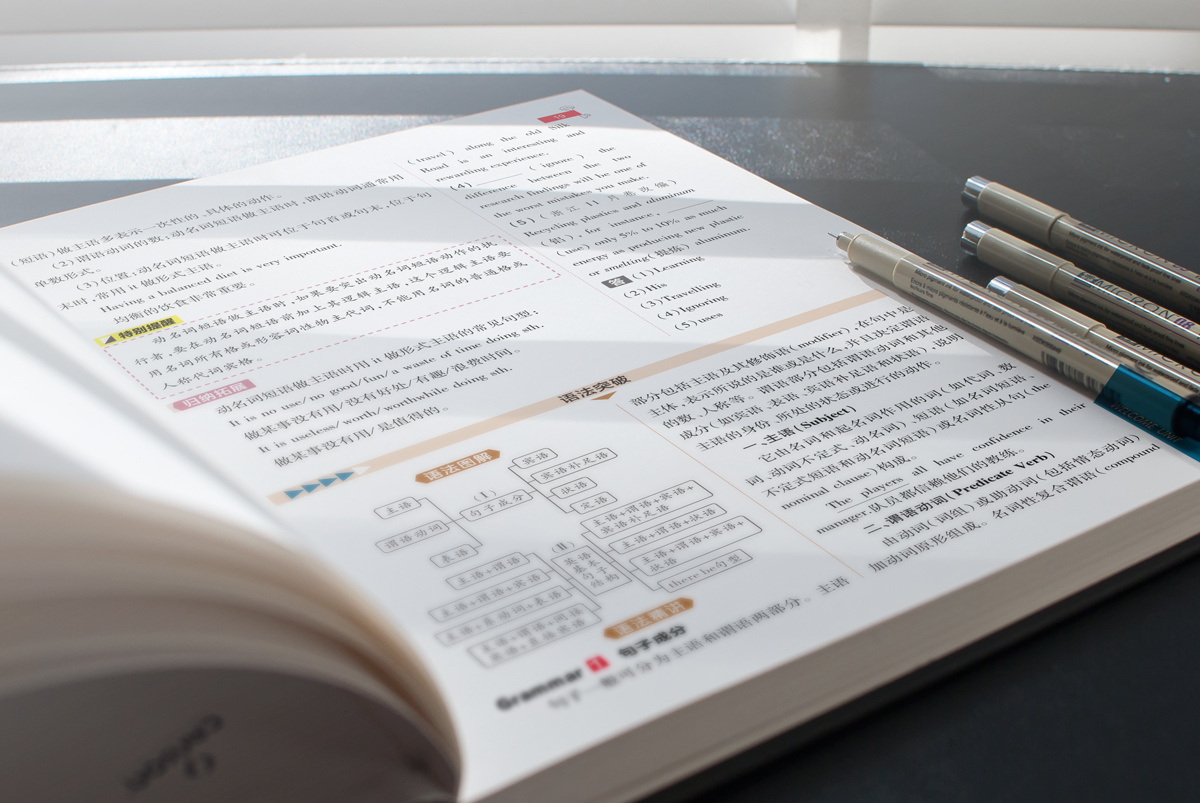 19
(短语)做主语多表示一次性的、具体的动作。
(2)谓语动词的数:动名词短语做主语时,谓语动词通常用
单数形式。
(3)位置:动名词短语做主语时可位于句首或句末,位于句
末时,常用 it 做形式主语。
Having a balanced diet is very important.
均衡的饮食非常重要。
特别提醒
动名词短语做主语时,如果要突出动名词短语动作的执
行者,要在动名词短语前加上其逻辑主语,这个逻辑主语要
用名词所有格或形容词性物主代词,不能用名词的普通格或
人称代词宾格。
归纳拓展
动名词短语做主语时用 it 做形式主语的常见句型:
It is no use/no good/fun/a waste of time doing sth.
做某事没有用/没有好处/有趣/浪费时间。
It is useless/worth/worthwhile doing sth.
做某事没有用/是值得的。
(travel) along the old Silk
Road is an interesting and
rewarding experience.
(4) (ignore) the
difference between the two
research findings will be one of
the worst mistakes you make.
(5)(浙江 11 月卷改编)
Recycling plastics and aluminum
(铝), for instance,
(use) only 5% to 10% as much
energy as producing new plastic
or smelting(提炼) aluminum.
答 (1)Learning
(2)His
(3)Travelling
(4)Ignoring
(5)uses
语法突破
语法图解
主语
谓语动词
表语
(Ⅰ)
句子成分
宾语
宾语补足语
状语
定语
主语+谓语
主语+谓语+宾语
主语+系动词+表语
主语+谓语+间接
宾语+直接宾语
(Ⅱ)
英语
基本
句子
结构
主语+谓语+宾语+
宾语补足语
主语+谓语+状语
主语+谓语+宾语+
状语
there be句型
语法精讲
Grammar 1 句子成分
句子一般可分为主语和谓语两部分。主语
部分包括主语及其修饰语(modifier),在句中是
主体,表示所说的是谁或是什么,并且决定谓语
的数、人称等。谓语部分包括谓语动词和其他
成分(如宾语、表语、宾语补足语和状语),说明
主语的身份、所处的状态或进行的动作。
一、主语(Subject)
它由名词和起名词作用的词(如代词、数
词、动词不定式、动名词)、短语(如名词短语、
不定式短语和动名词短语)或名词性从句(the
nominal clause)构成。
The players all have confidence in their
manager.队员都信赖他们的教练。
二、谓语动词(Predicate Verb)
由动词(词组)或助动词(包括情态动词)
加动词原形组成。名词性复合谓语(compound
MICRON